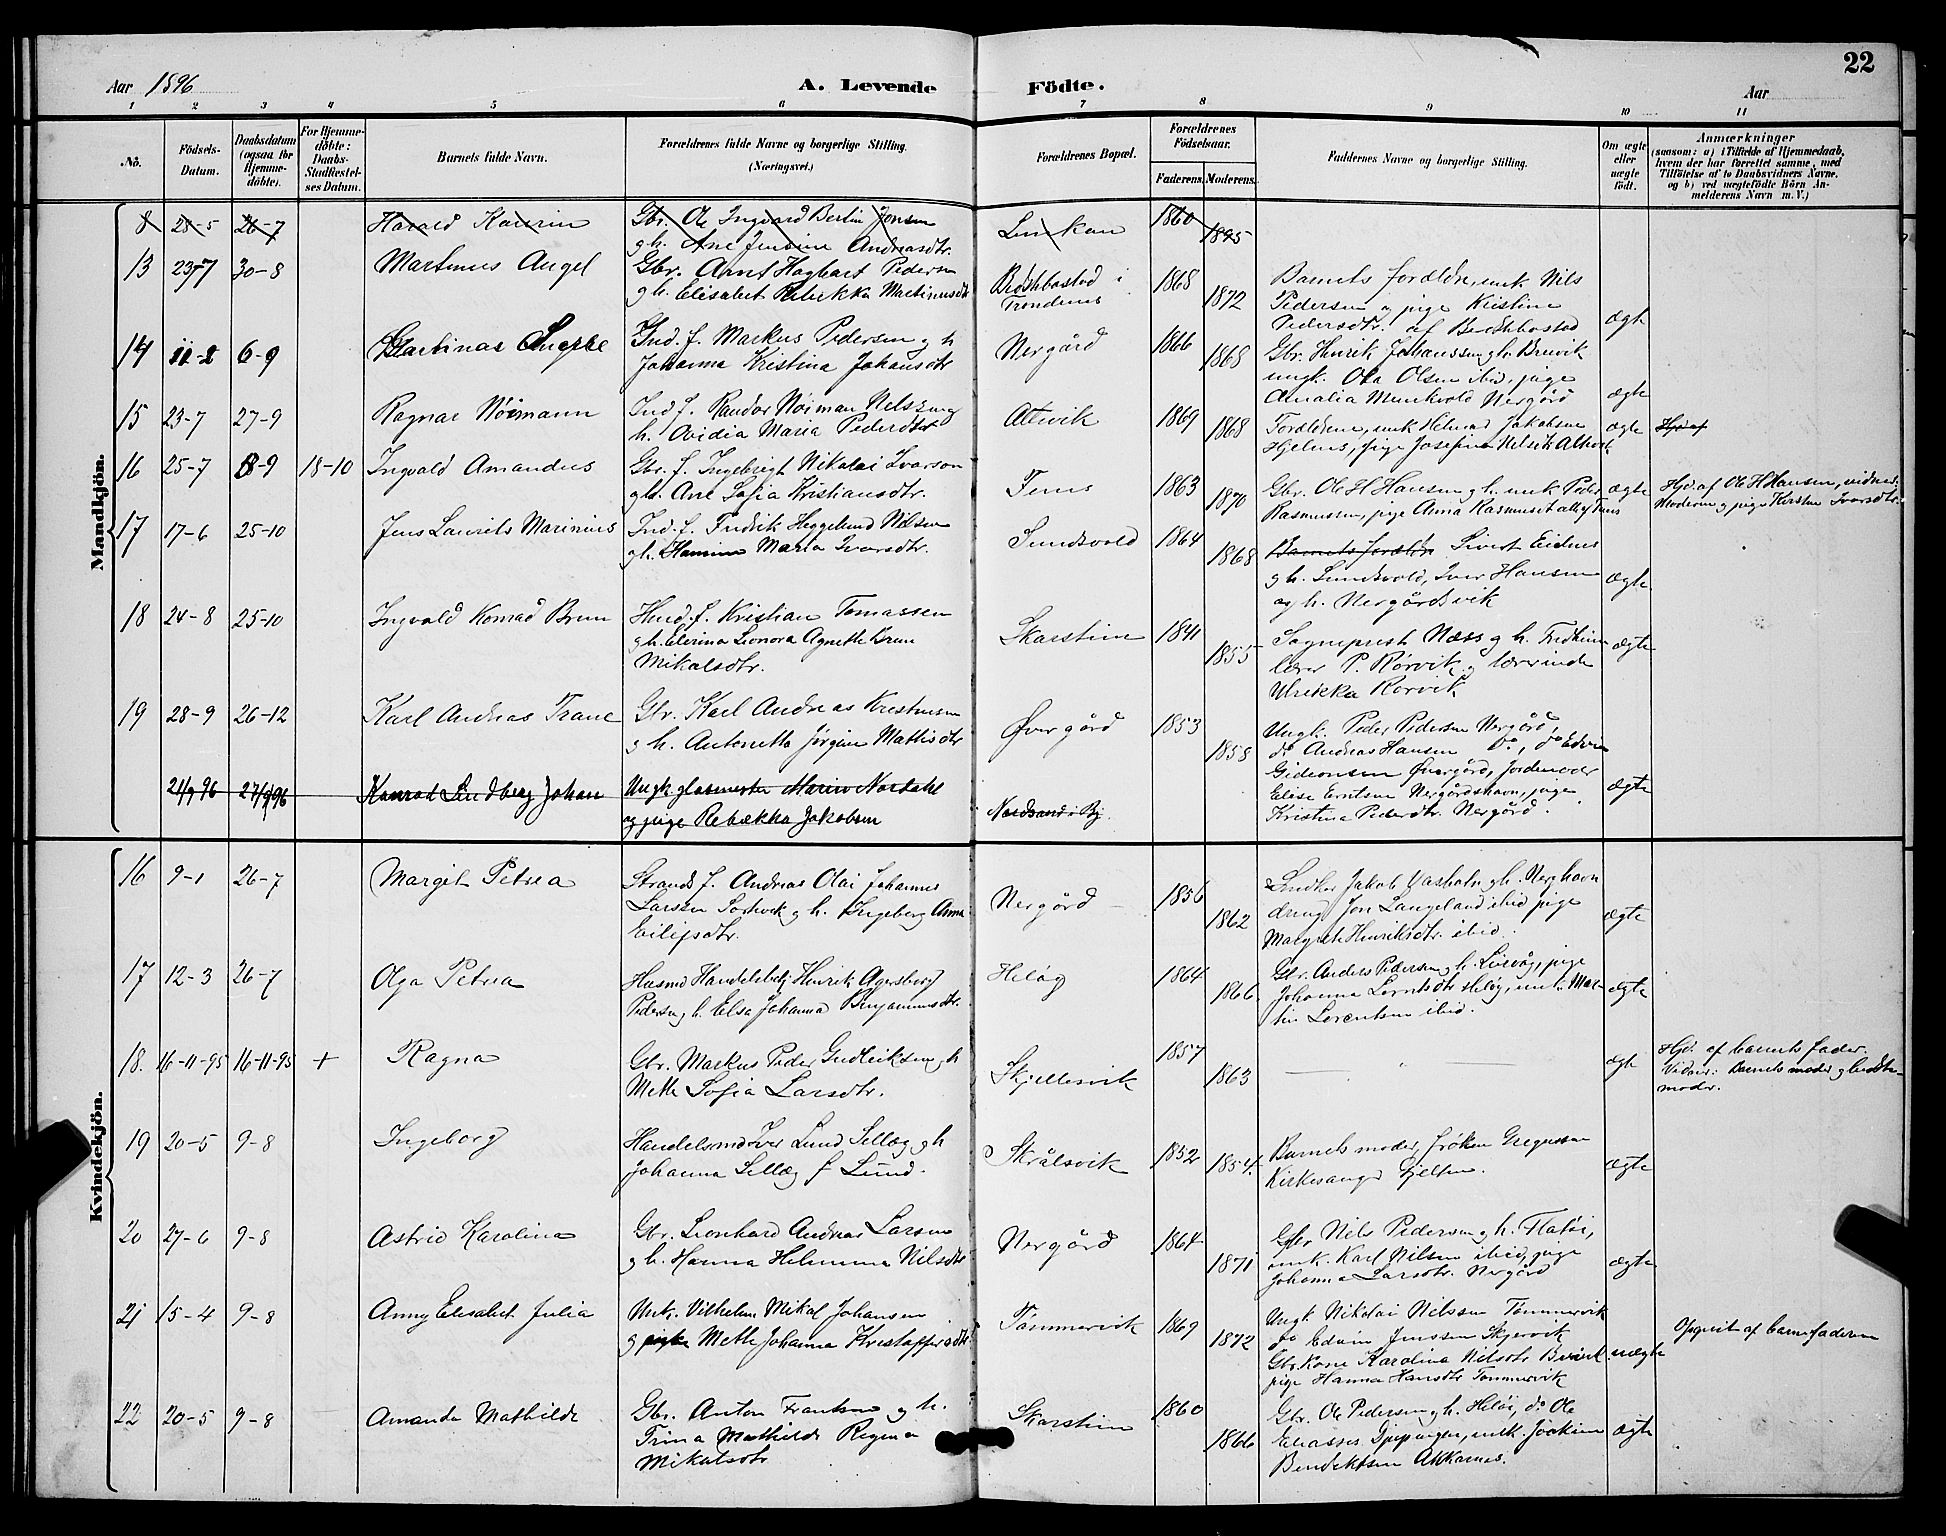 22
Aar 1896
A. Levende Födte.
Aar
1 2 3 4 5 6 7 8 9 10 11
No. Födsels-Datum. Daabsdatum (ogsaa for Hjemme-döbte). For Hjemme-döbte: Daabs-Stadfæstel-ses Datum. Barnets fulde Navn. Forældrenes fulde Navne og borgerlige Stilling. (Næringsvei.) Forældrenes Bopæl. Forældrenes Födselsaar. Faderens. Moderens. Faddernes Navne og borgerlige Stilling. Om ægte eller uægte födt. Anmærkninger (saasom: a) i Tilfælde af Hjemmedaab, hvem der har forrettet samme, med Tilföielse af to Daabsvidners Navne. og b) ved uægtefödte Börn An-melderens Navn m. V.)
Mandkjön.
8 28-5 26-7 Harald Kaurin Gbr. Ole Ingvard Bertin Jensen
gh. Ane Jensine Andreasdtr. 1860 1895
13 23-7 30-8 Martinus Angel Gbr. Arnt Hagbart Pedersen
gh. Elisabet Rebekka Martinusdtr i Trondenes 1868 1872
Barnets forældre, unk Nils
Pedersen og pige Kristine
Pedersdtr. af ægte
14 11-2 6-9 Ind. f. Markus Pedersen gh
Johanna Kristina Johansdtr Nergård 1866 1868
Gbr. Henrik Johanssen gh. Bruvik
ungk. Ola Olsen ibid. pige
Amalia Munkvold Nergård ægte
15 23-7 27-9 Ragnar Nöimann Ind. f. Randor Nöiman Nelsen og
h. Ovidia Maria Pedersdtr Altevik 1869 1868
Forældrene, unk Helmer Jakobsen
Hjelnes, pige Josefine ægte Hjd af
16 25-7 8-9 18-10 Ingvald Amandus Gbr. f. Ingebrigt Nikolai Ivarson
gh. Ane Sofia Kristiansdtr. 1863 1870
Gbr. Ole H Hansen gh. unk Peder
Rasmussen, pige Anna ægte
Hjd. af Ole H Hansen, vidner:
Moderen og pige Kirstine Ivarsdtr.
17 17-6 25-10 Jens Laurits Marinius Ind. f. Fredrik Heggelund Nilsen
gh. Hansine Maria Ivarsdtr. Sundsvold 1864 1868
Barnets forældre Sivert Eidnes
gh. Sundsvold, Iver Hansen
og h. Nergårdsvik ægte
18 24-8 25-10 Ingvald Konrad Brun Husd. f. Kristian Tomassen
gh. Elerina Leonora Agnethe Brun
Mikalsdtr. Skarstein 1841 1855
Sogneprest Næss gh. Fredheim
lærer P. Rörvik, lærerinde
Ulrikka Rörvik ægte
19 28-9 26-12 Karl Andreas Trane Gbr. Karl Andreas Kristensen
gh. Antonetta Jörgine Mattisdtr Övergård 1853 1858
Ungk. Peder Pedersen Nergård,
do Andreas Hansen do, do Edvin
Gideonsen Övergård, Jordemoder
Elise Erntsen Nergårdshavn, pige
Kristina Pedersdtr. Nergård. ægte
24/9 96 27/9 96 Konrad Lindberg Johan Ungk glasmester Marius Nordahl
og pige Rebækka Jakobsen Nordsand i Bj.
Kvindekjön.
16 9-1 26-7 Margit Petrea Strands f. Andreas Olai Johannes
Larsen gh. Ingeborg Anna
Eilifsdtr. Nergård 1856 1862
Jakob Vasholm gh. Nerghavn
dreng Jon Langeland ibid pige
Margrete Henriksdtr. ibid. ægte
17 12-3 26-7 Olga Petrea Husmd Handelsbetj Henrik Agersborg
Pedersen gh. Elsa Johanna Benjaminsdtr. Helög 1864 1866
Gbr. Anders Pedersen gh. pige
Johanna Lorntsdtr Helög, unk. Mar-
tin Lorentsen ibid. ægte
18. 16-11-95 16-11-95 + Ragna Gbr. Markus Peder Gudleiksen gh
Mette Sofia Larsdtr. Skjellesvik 1857 1863
ægte
Hjd. af barnets fader.
Vidner: Barnets moder og bedste-
moder.
19 20-5 9-8 Ingeborg Handelsmd Iver Lund Sellæg gh
Johanna Sellæg f Lund. Skrålsvik 1852 1854.
Barnets moder, fröken Gregussen
Kirkesanger ægte
20 27-6 9-8 Astrid Karolina Gbr. Leonhard Andreas Larsen
gh. Hanna Helmina Nilsdtr Nergård 1864 1871
Gbr Nils Pedersen gh. Flatöi,
unk. Karl Nilsen ibid, pige
Johanna Larsdtr. Nergård ægte
21 15-4 9-8 Anny Elisabet Julia Unk. Vilhelm Mikal Johansen
og pike Mette Johanna Kristoffersdtr. Tömmervik 1869 1872
Ungk Nikolai Nilssen Tömmervik
do Edvin Jenssen Skjervik
Gbr. kone Karolina Nilsdtr
pige Hanna Hansdtr Tömmervik uægte
Opgivet af barnefaderen
22 20-5 9-8 Amanda Mathilde Gbr. Anton Frantsen gh.
Trina Mathilde Regina
Mikalsdtr. Skarstein 1860 1866
Gbr. Ole Pedersen gh. Helöi, do Ole
Eliassen unk. Joakim
Bendiktsen Akkarnes. ægte